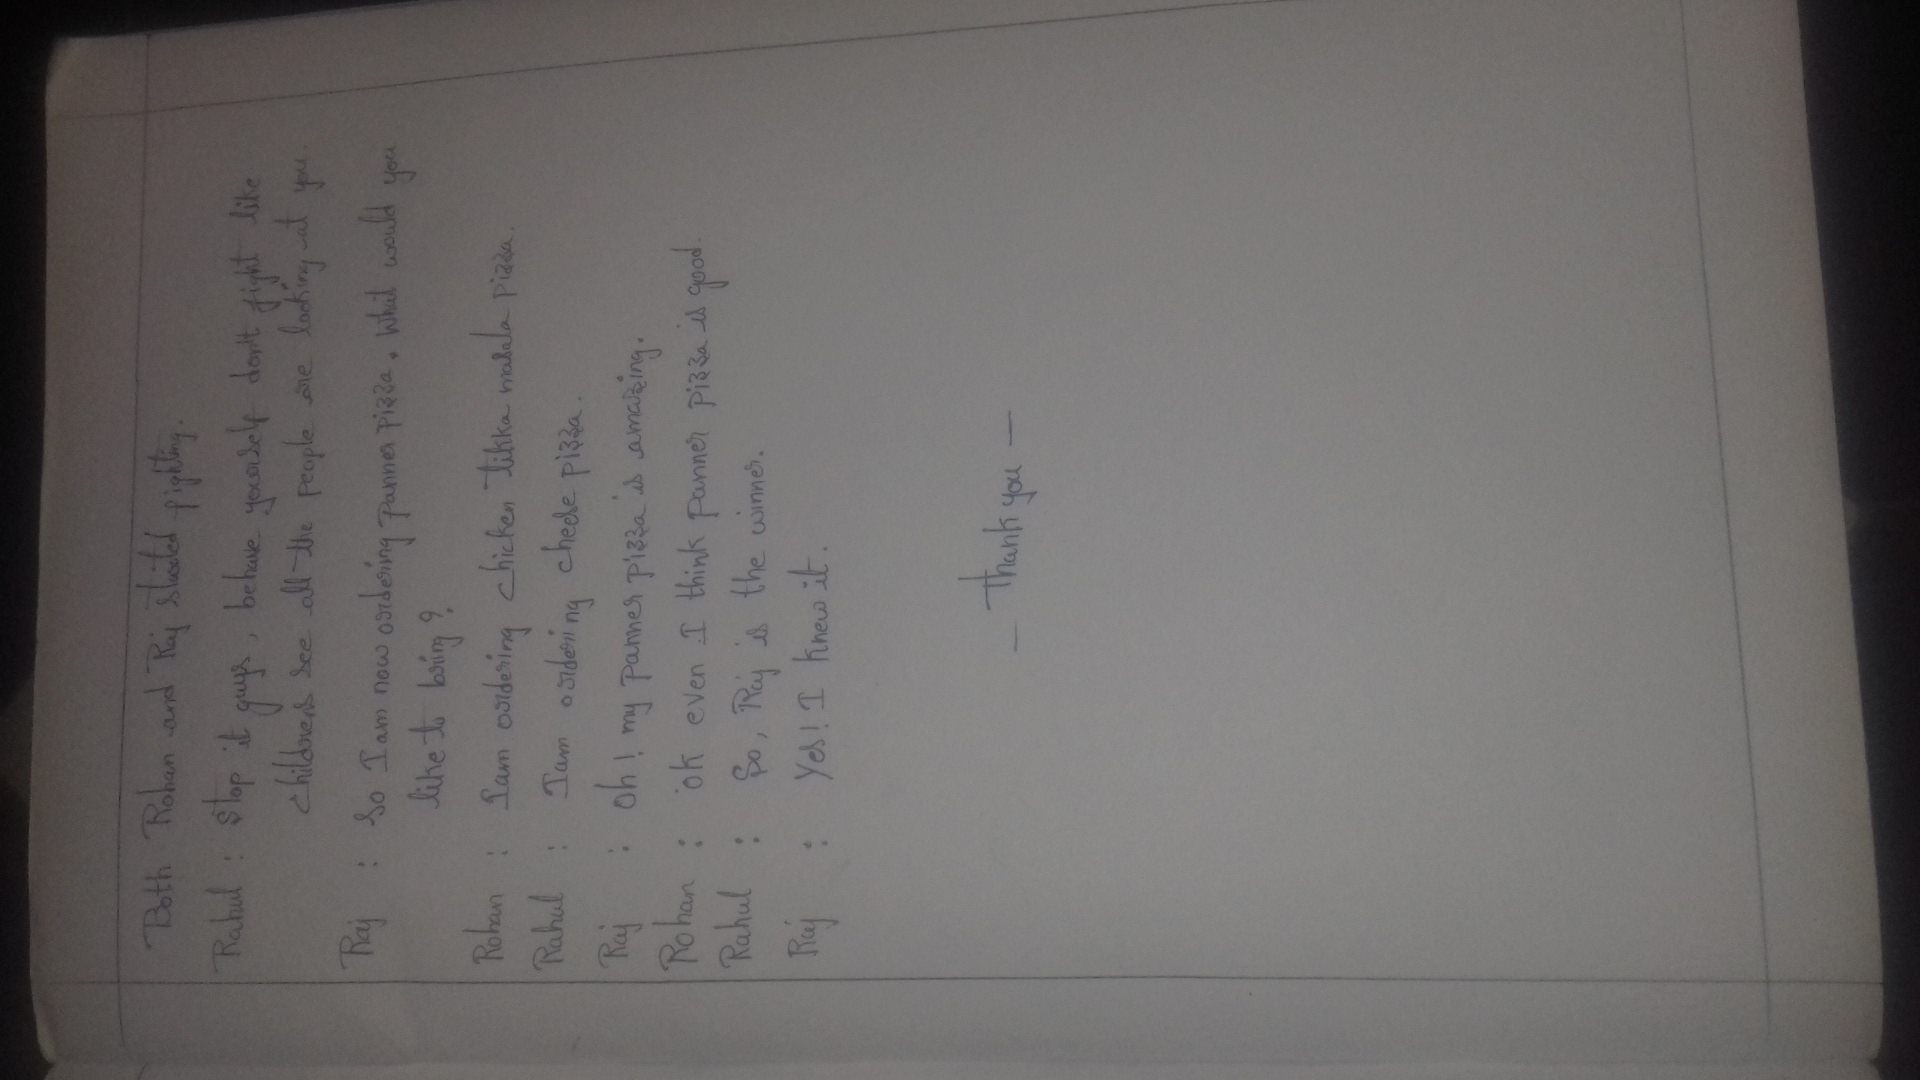 Both Rohan and Raj started fighting.
Rahul : Stop it guys, behave yourself don't fight like
childrens see all the people are looking at you.
Raj : So I am now ordering panner pizza. What would you
like to bring?
Rohan : I am ordering chicken tikka masala pizza.
Rahul : I am ordering cheese pizza.
Raj : Oh! my panner pizza is amazing.
Rohan : Ok even I think panner pizza is good.
Rahul : So, Raj is the winner.
Raj : Yes! I knew it.
— Thank you —